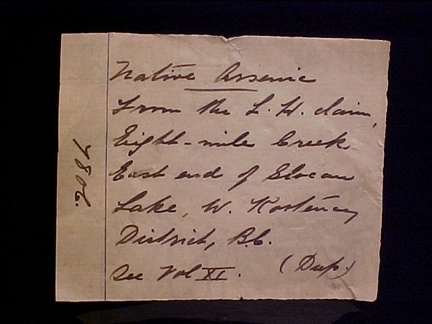 Native Arsenic
from the L. H. claim,
Eight-mile Creek
East end of Slocan
Lake, W. Kootenay
District, B.C.
See Vol XI. (Dup.)
7806.